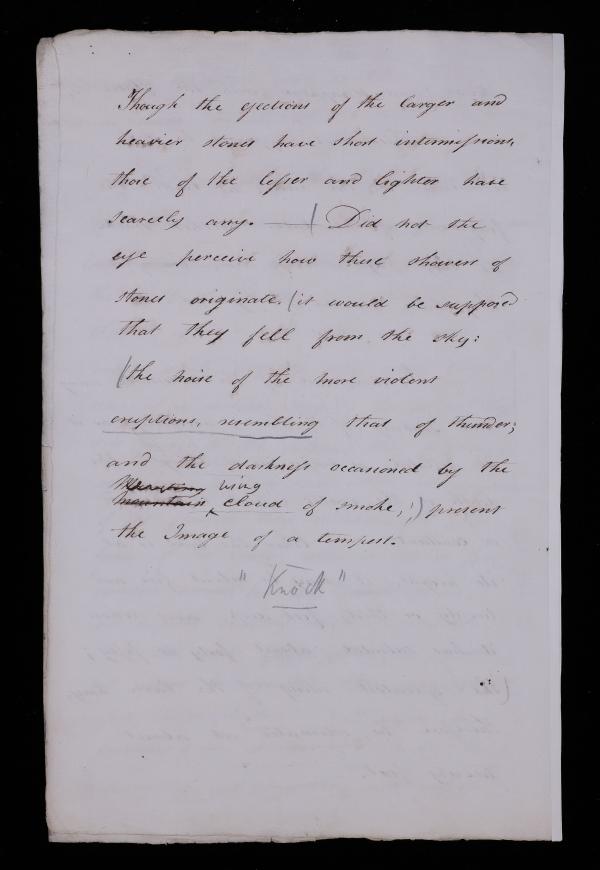 Though the ejections of the larger and
heavier stones have short intermissions,
those of the lesser and lighter have
scarcely any. — / Did not the
eye perceive how these showers of
stones originate, (it would be supposed
that they fell from the sky:
(the noise of the more violent
eruptions, resembling that of thunder;
and the darkness occasioned by the
mounting
mountain cloud of smoke,;) present
the Image of a tempest.
"Knock"